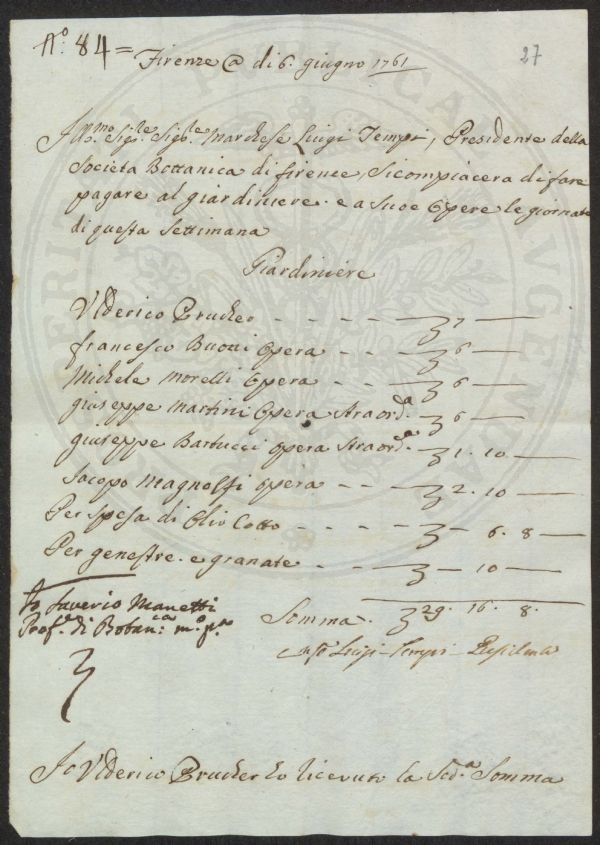 N.º 84 =
27
Firenze @ di 6. giugno 1761
Ill.mo Sig.re Sig.re Marchese Luigi Tempi, Presidente della
Societa Bottanica di firenze, si compiacera di fare
pagare al giardiniere. e a Suoe Opere le giornate
di questa Settimana
Giardiniere
Vlderico Prucker - - - - 7 —
francesco Buotti Opera - - - 6 —
Michele Morelli Opera - - - 6 —
giuseppe Martini Opera Straord.a - 6 —
giuseppe Bartucci opera Straord.a - 1. 10 —
Jacopo Magnolfi opera - - - 2. 10 —
Per spesa di Olio Cotto - - - — 6. 8 —
Per genestre. e granate - — 10 —
Somma. 29. 16. 8.
Io Saverio Manetti
Prof.e di Botan.ca m.o p.a
Luigi Tempi Presidente
Io Vlderico Prucker ho ricevuto la Sod.a Somma